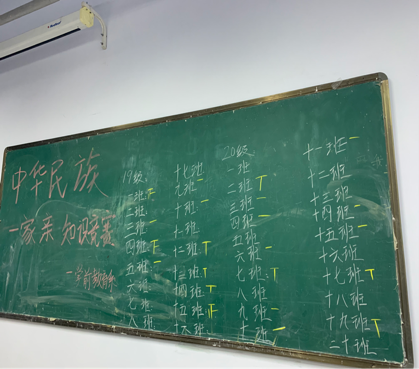 中华民族
一家亲 知识竞赛
一学前教育部
19级
一班
二班
三班
四班
五班
六班
七班
八班
十七班
九班
十班
十一班
十二班
十三班
十四班
十五班
十六班
20级
一班
二班
三班
四班
五班
六班
七班
八班
九班
十班
十一班
十二班
十三班
十四班
十五班
十六班
十七班
十八班
十九班
二十班